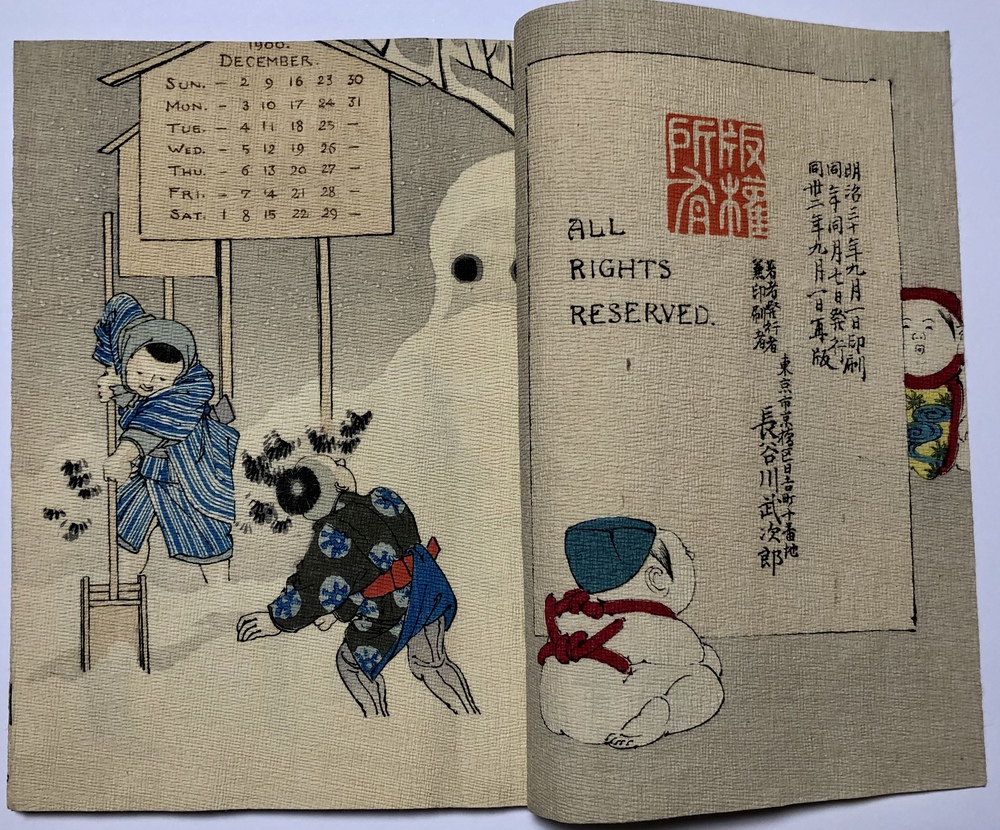 1900.
DECEMBER.
SUN. – 2 9 16 23 30
MON. – 3 10 17 24 31
TUE. – 4 11 18 25 –
WED. – 5 12 19 26 –
THU. – 6 13 20 27 –
FRI. – 7 14 21 28 –
SAT. 1 8 15 22 29 –
版權
所有
ALL
RIGHTS
RESERVED.
明治三十年九月一日印刷
同年同月七日発行
同卅二年九月一日再版
著者発行者
兼印刷者
東京市京橋区日吉町十番地
長谷川武次郎